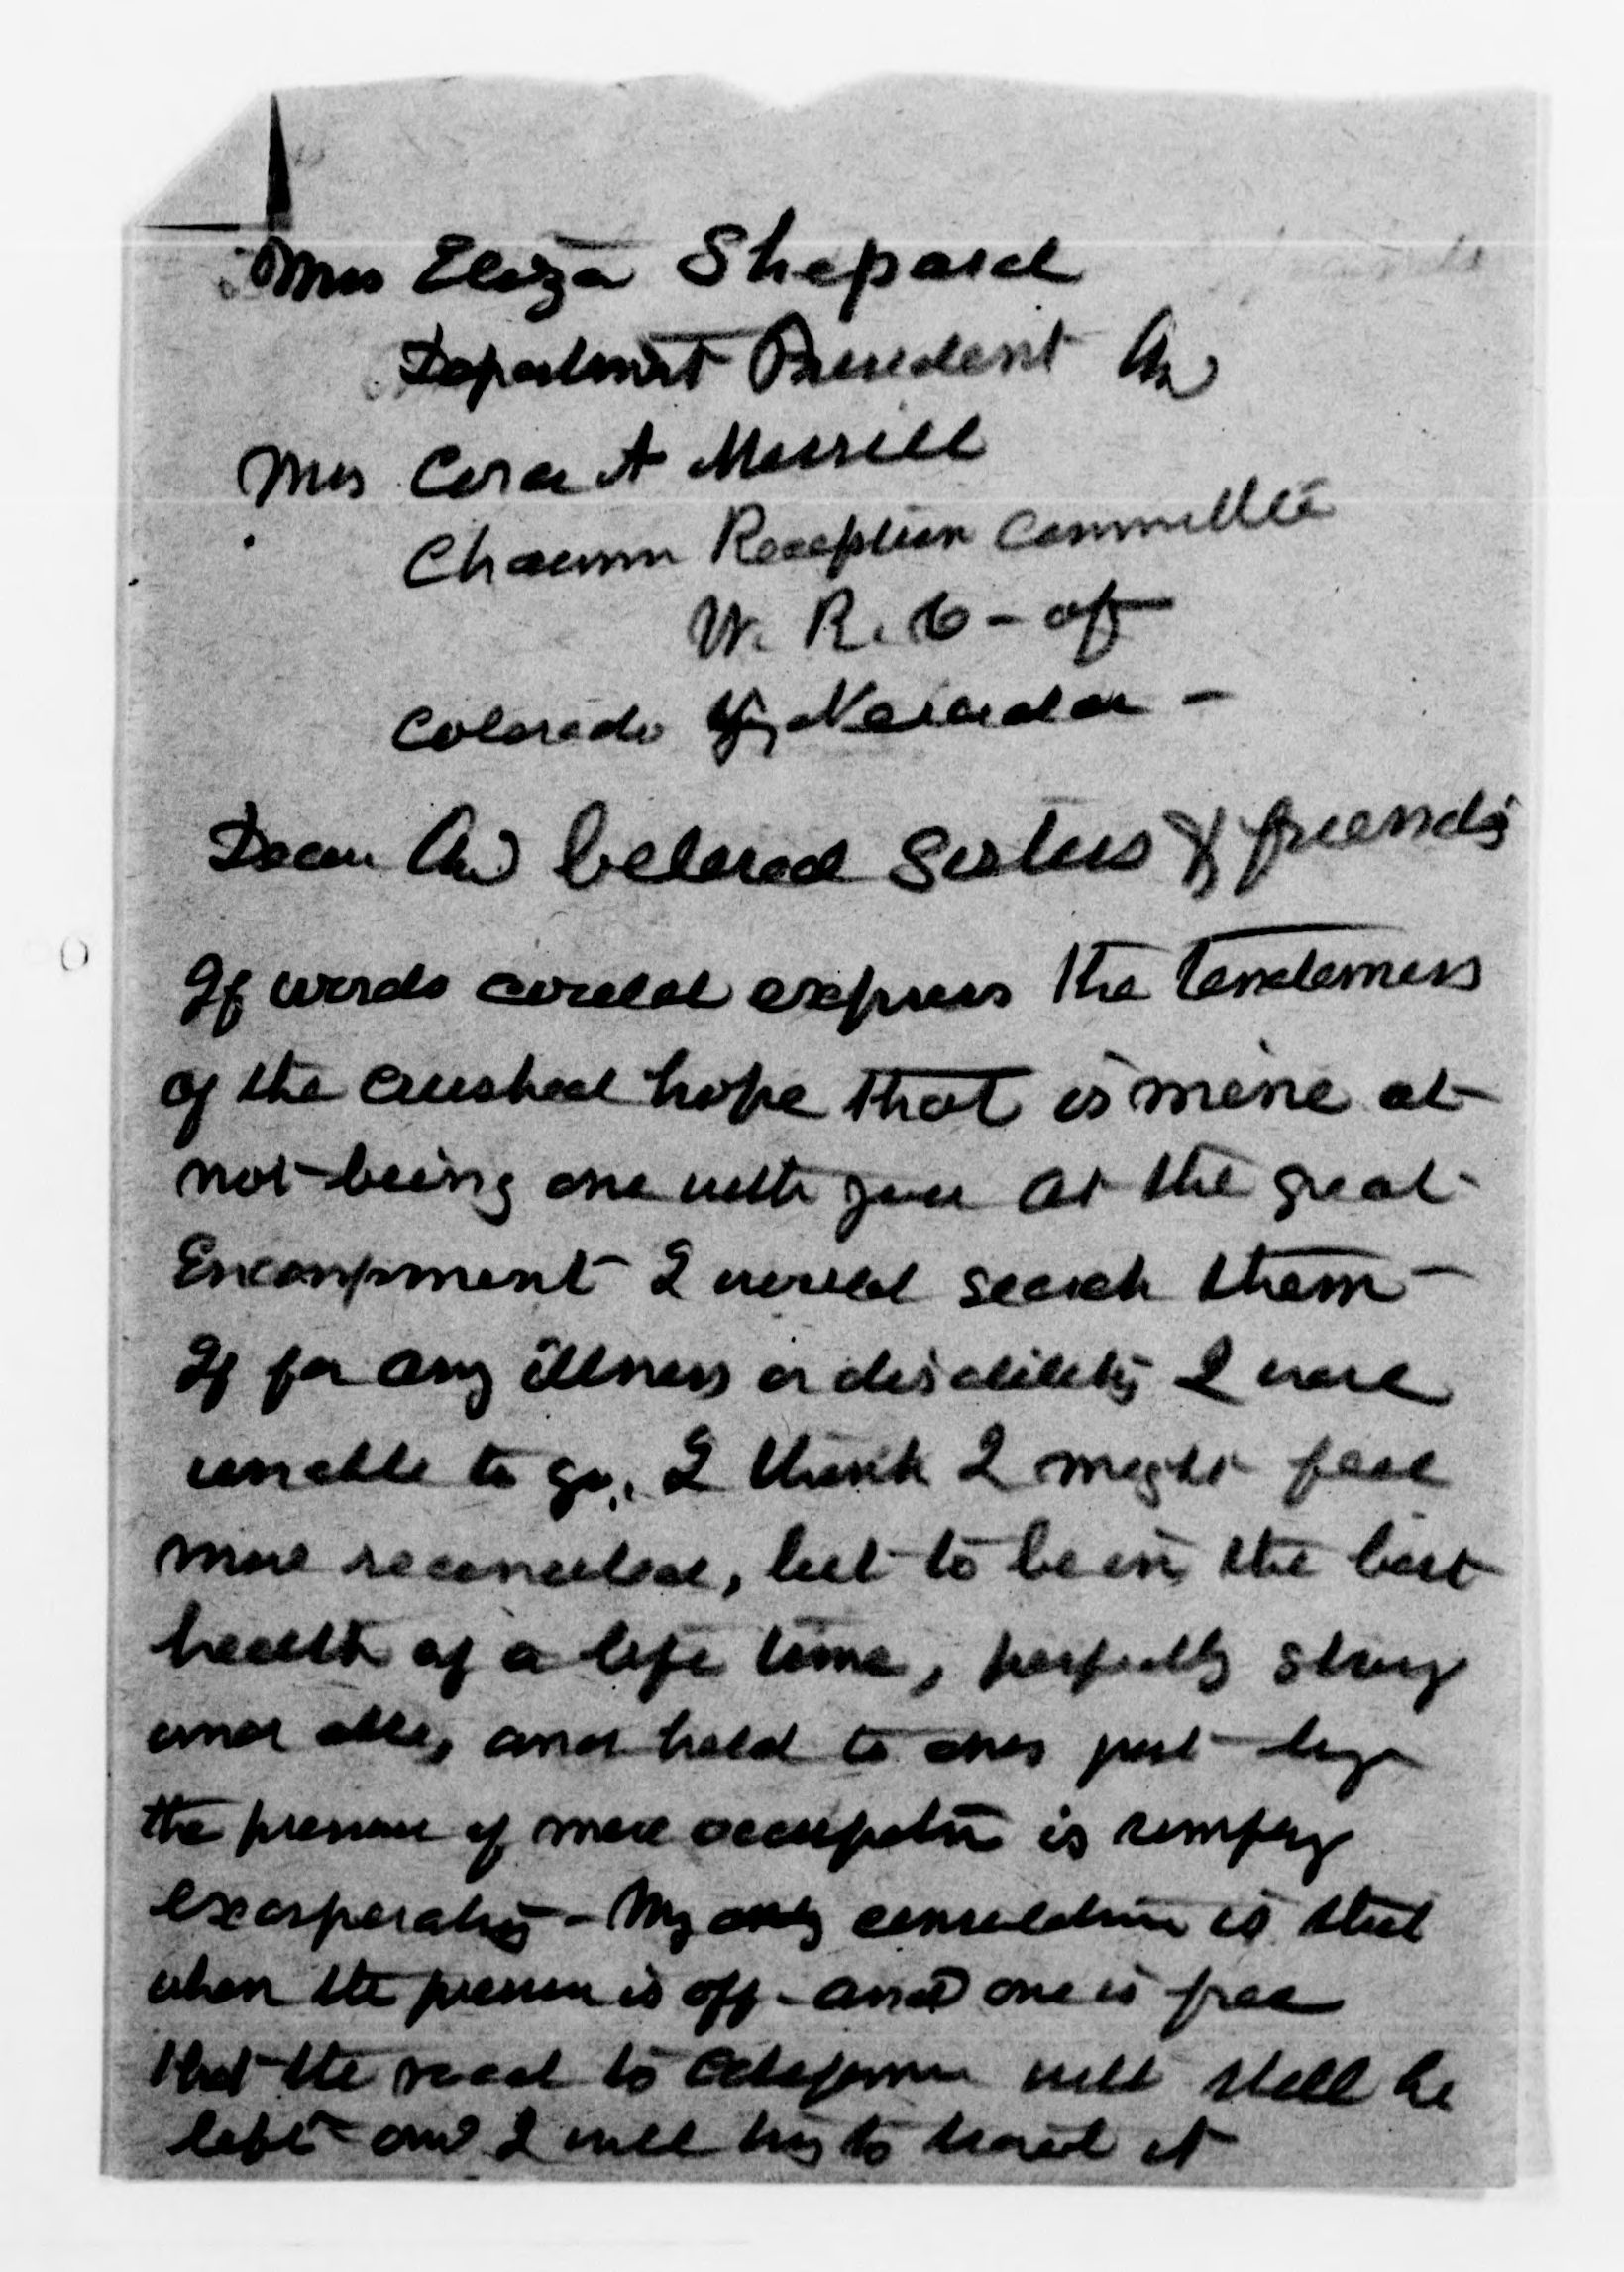 Mrs Eliza Shepard
Department President and
Mrs Cora A Merrill
Chairmn Reception Committee
W. R. C - of
Colorado &
Dear and beloved Sisters & friends
If words could express the tenderness
of the crushed hope that is mine at
not being one with you at the great
Encampment I would search them -
If for any illness or disability I were
unable to go, I think I might feel
more reconciled, but to be in the best
health of a life time, perfectly strong
and able, and held to ones post by
the pressure of mere occupation is simply
exasperating - My only consolation is that
when the pressure is off - and one is free
that the road to California will still be
left - and I will try to travel it